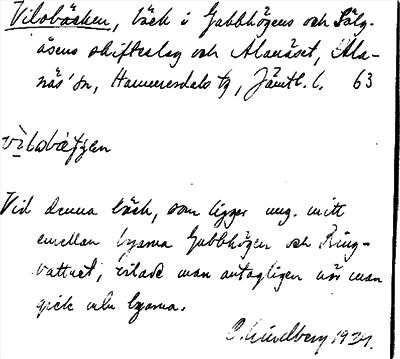 Vilobäcken, bäck i Gubbhögens och Sälg-
åsens skifteslag och Alanäset, Ala-
näs' sn, Hammerdals tg, Jämtl. l. 63
vìlobätʃen
Vid denna bäck, som ligger ung. mitt
emellan byarna Gubbhögen och Ring-
vattnet, vilade man antagligen när man
gick mln byarna.
C. Lundberg 1934.